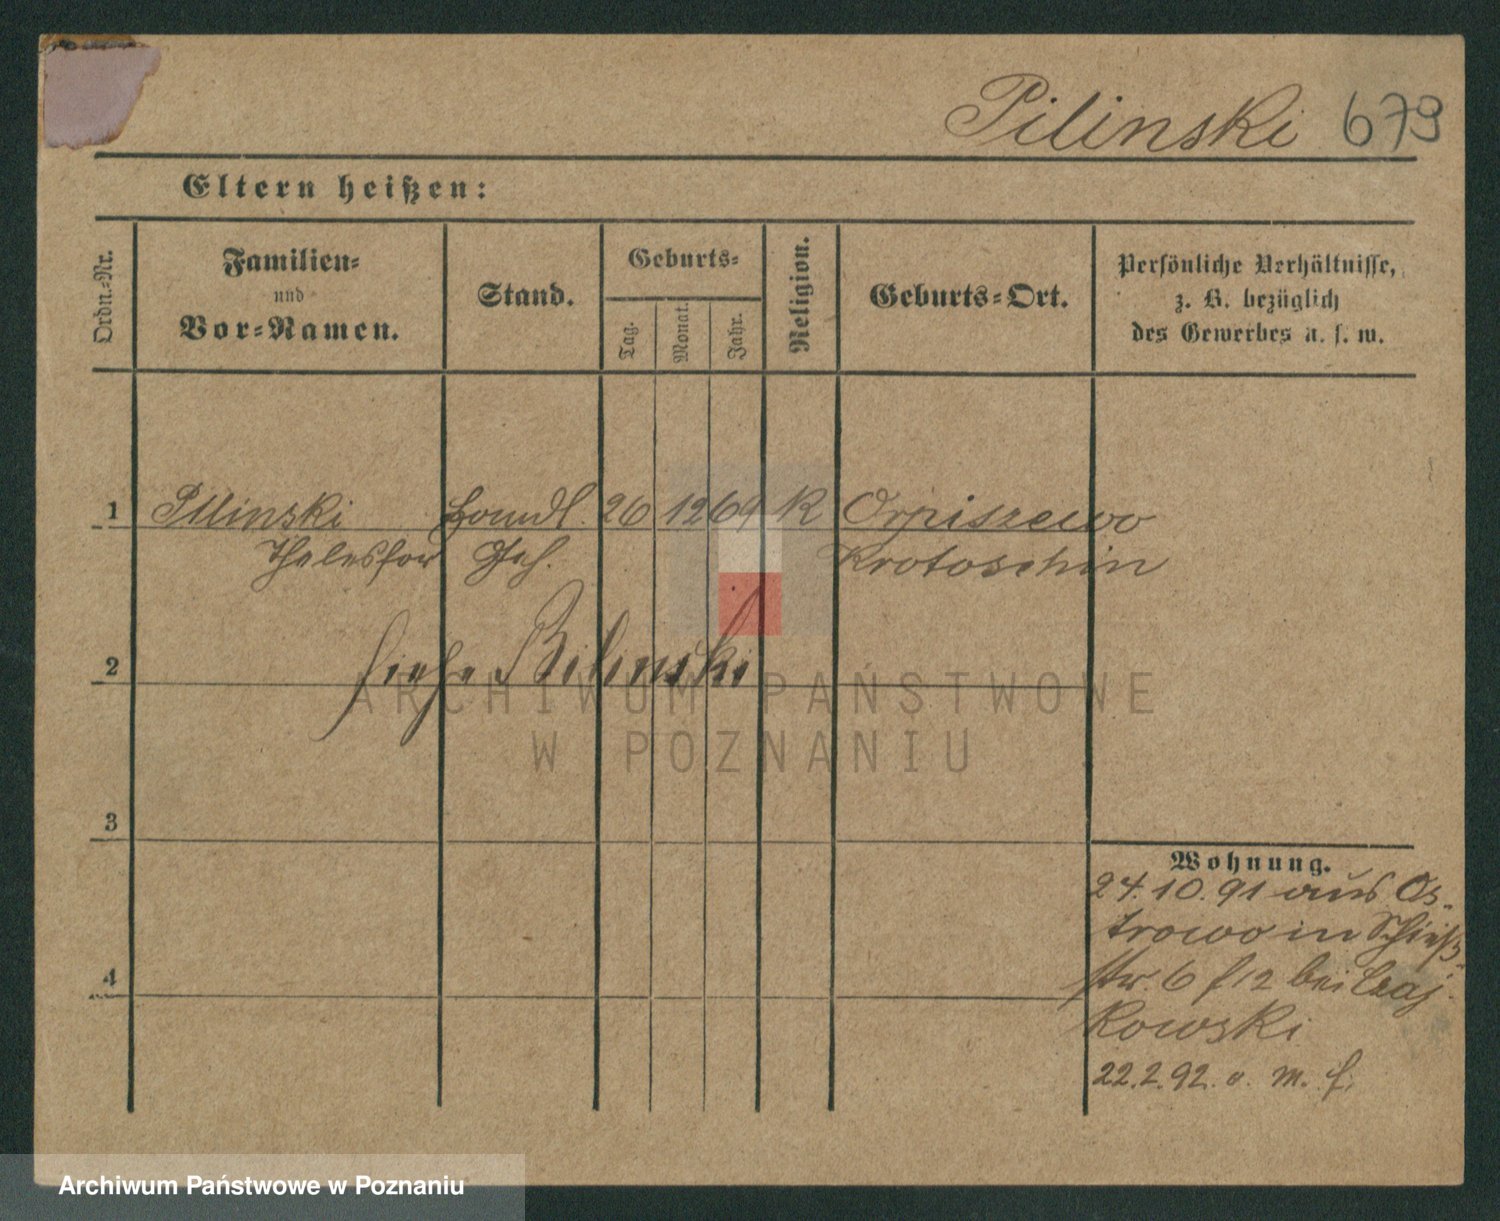 Pilinski 679
Eltern heißen:
Ordn.-Nr.
Familien-
und
Vor-Namen.
Stand.
Geburts-
Tag.
Monat.
Jahr.
Religion.
Geburts-Ort.
Persönliche Verhältnisse,
z. B. bezüglich
des Gewerbes u. s. w.
1 Pilinski Handl. 26 12 69 K Orpiszewo
Thelesfor Geh. Krotoschin
siehe Bilinski
2
ARCHIWUM PAŃSTWOWE
W POZNANIU
3
Wohnung.
24.10.91 aus Os-
trowo in Schieß-
str. 6 bei Czaj-
kowski
4
22.2.92.
Archiwum Państwowe w Poznaniu